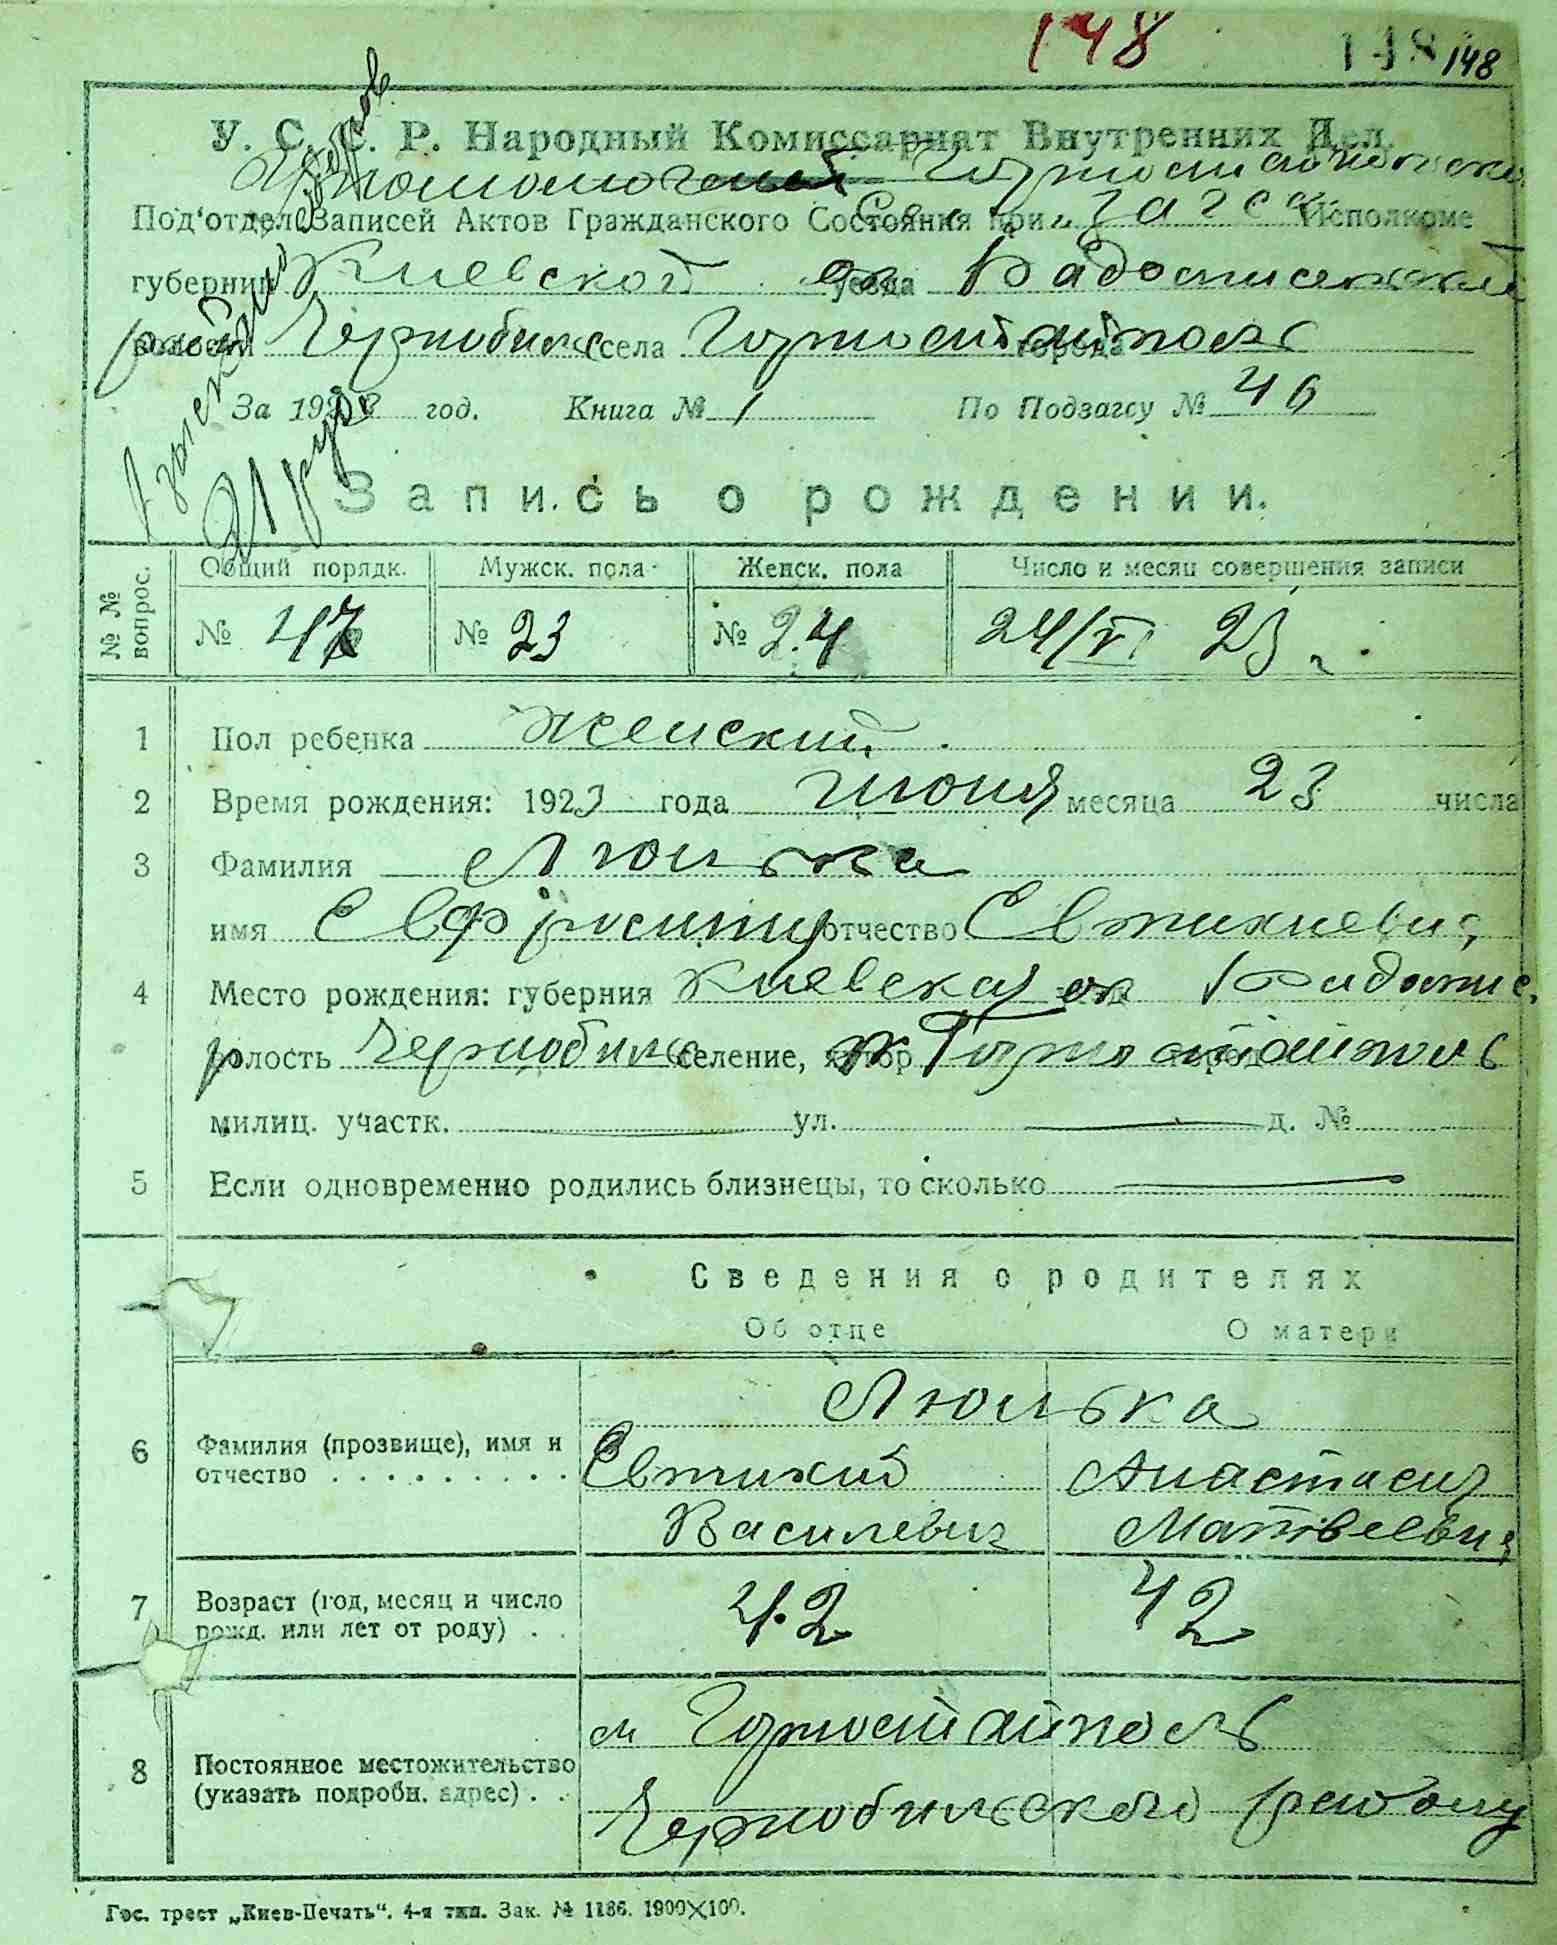 148 148 148
У. С. С. Р. Народный Комиссариат Внутренних Дел.
Под'отдел Записей Актов Гражданского Состояния при „Загса“ Исполкоме
губернии Киевской ок уезда Радомисельской
волости Чернобильс села Горностайполь города
За 1923 год. Книга № 1 По Подзагсу № 46
Взыскано
21 руб
Запись о рождении.
№ № вопрос. Общий порядк. Мужск. пола Женск. пола Число и месяц совершения записи
№ 47 № 23 № 24 24/VI 23 г.
1 Пол ребенка женский.
2 Время рождения: 1923 года июня месяца 23 числа
3 Фамилия Люлька
имя Евфросинія отчество Евтихиевна
4 Место рождения: губерния Киевская ок Радомис.
волость Чернобильс селение, хутор м Горностайполь
милиц. участк. ул. д. №
5 Если одновременно родились близнецы, то сколько
Сведения о родителях
Об отце О матери
Люлька
6 Фамилия (прозвище), имя и отчество Евтихий Анастасия
Василевич Матвеевна
7 Возраст (год, месяц и число рожд. или лет от роду) 42 42
м Горностайполь
8 Постоянное местожительство (указать подробн. адрес) Чернобильского району
Гос. трест „Киев-Печать“. 4-я тип. Зак. № 1186. 1900×100.